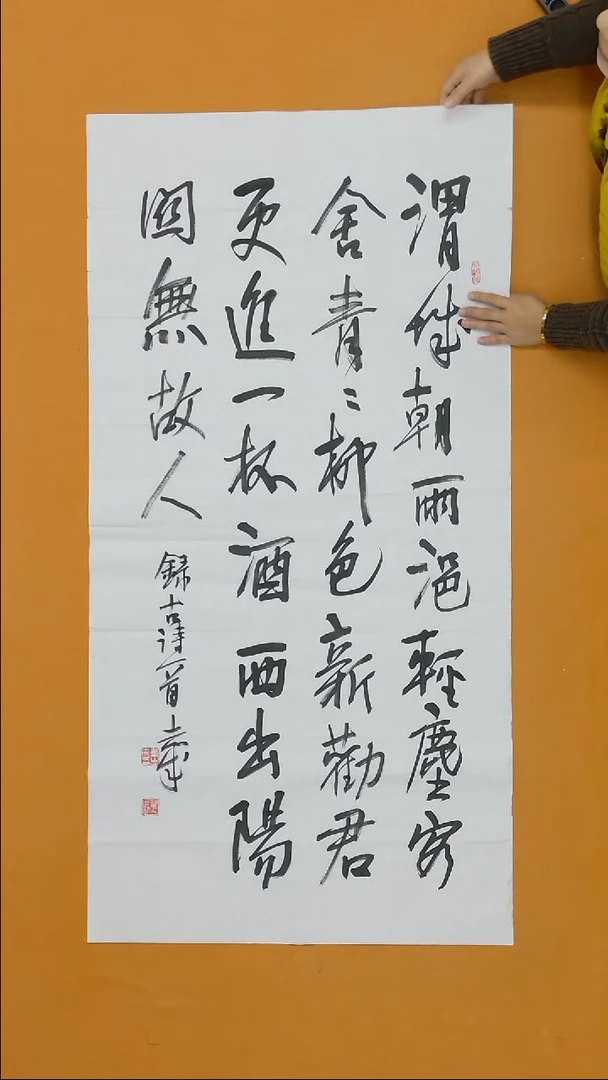 渭城朝雨浥輕塵客
舍青〻柳色新勸君
更進一杯酒西出陽
關無故人
錄古詩一首